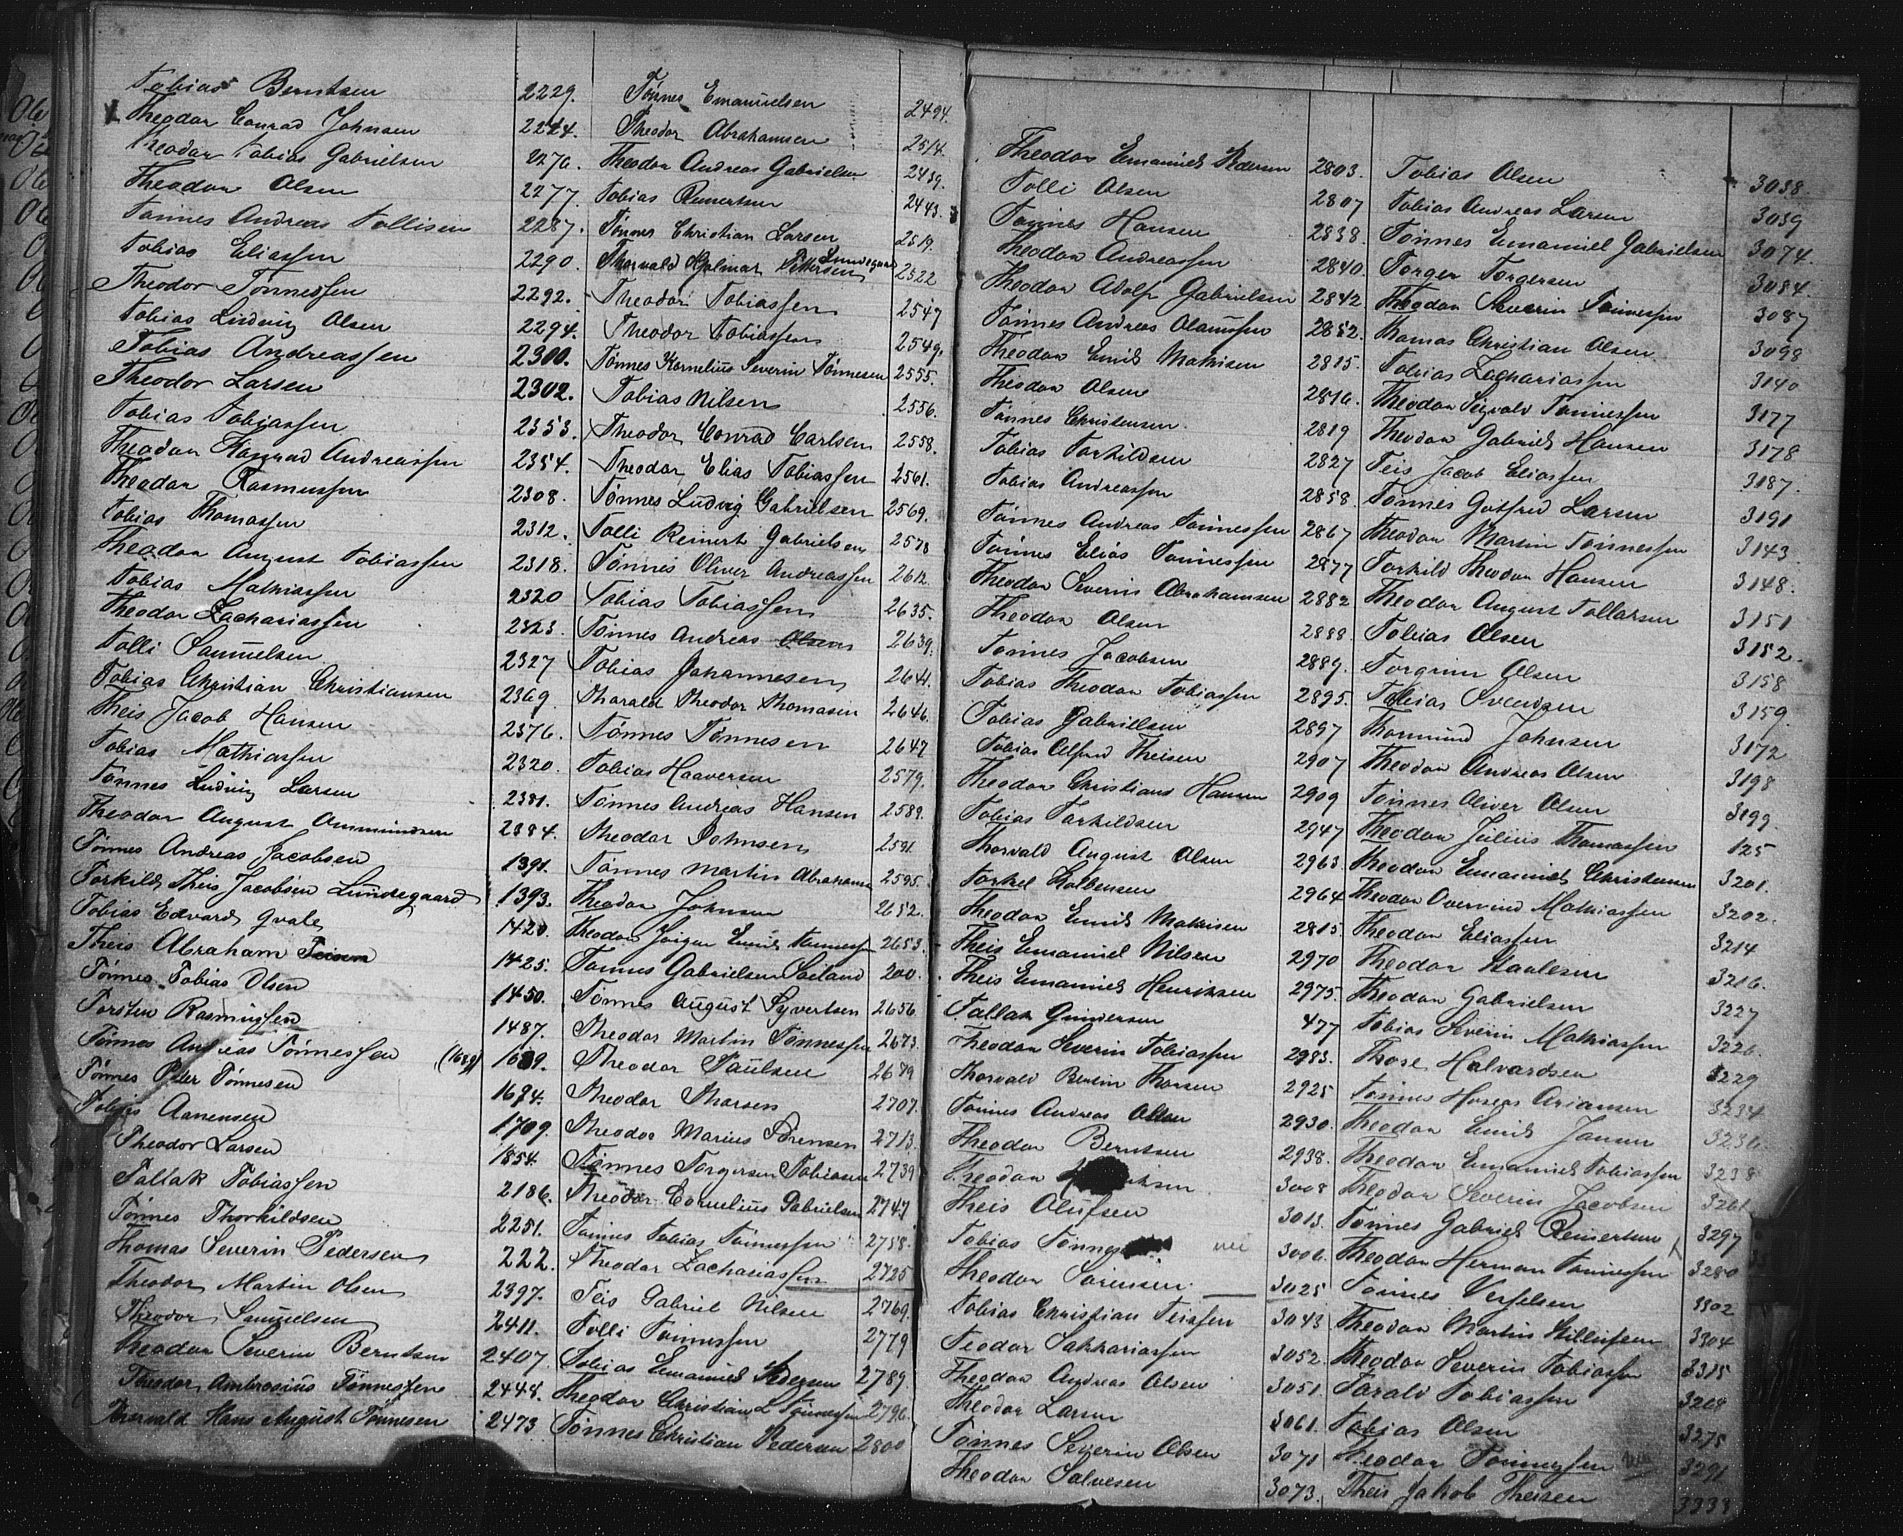 Tobias Berntsen 2229.
Theodor Conrad Johnsen 2224.
Theodor Tobias Gabrielsen 2270.
Theodor Olsen 2277.
Tønnes Andreas Tollisen 2287.
Tobias Eliassen 2290.
Theodor Tønnessen 2292.
Tobias Ludvig Olsen 2294.
Tobias Andreassen 2300.
Theodor Larsen 2302.
Tobias Tobiassen 2353.
Theodor Konrad Andreassen 2354.
Theodor Rasmussen 2308.
Tobias Thomassen 2312.
Theodor August Tobiassen 2318.
Tobias Mathiassen 2320
Theodor Zachariassen 2323.
Tolli Samuelsen 2327
Tobias Christian Christiansen 2369.
Theis Jacob Hansen 2376.
Tobias Mathiassen 2320.
Tønnes Ludvig Larsen 2381.
Theodor August Ommundsen 2384.
Tønnes Andreas Jacobsen 1391.
Torkild Theis Jacobsen Lundegaard 1393.
Tobias Edvard Qvale 1420.
Theis Abraham 1425.
Tønnes Tobias Olsen 1450.
Torsten Rasmussen 1487.
Tønnes Andreas Tønnessen (1639) 1639.
Tønnes Peter Tønnesen 1674.
Tobias Aanensen 1709.
Theodor Larsen 1854.
Tallak Tobiassen 2186.
Tønnes Thorkildsen 2251.
Thomas Severin Pedersen 222.
Theodor Martin Olsen 2397.
Theodor Samuelsen 2411.
Theodor Severin Berntsen 2407.
Theodor Ambrosius Tønnessen 2448.
Thorvald Hans August Tønnesen 2473
Tønnes Emanuelsen 2494.
Theodor Abrahamsen 2514.
Theodor Andreas Gabrielsen 2439.
Tobias Reinertsen 2443.
Tønnes Christian Larsen 2519.
Thorvald Hjalmar Pettersen Lundegaard 2522
Theodor Tobiassen 2547
Theodor Tobiassen 2549.
Tønnes Kornelius Severin Tønnesen 2555.
Tobias Nilsen 2556.
Theodor Conrad Carlsen 2558.
Theodor Elias Tobiassen 2561.
Tønnes Ludvig Gabrielsen 2569.
Tolli Reinert Gabrielsen 2578
Tønnes Oliver Andreassen 2612.
Tobias Tobiassen 2635.
Tønnes Andreas Olsen 2639.
Tobias Johannesen 2641.
Tharald Theodor Thomasen 2646.
Tønnes Tønnesen 2647
Tobias Haaversen 2579.
Tønnes Andreas Hansen 2589.
Theodor Johnsen 2591
Tønnes Martin Abrahamsen 2595.
Theodor Johnsen 2652.
Theodor Jørgen Emil Tønness 2653.
Tønnes Gabrielsen 200.
Tønnes August Syvertsen 2656
Theodor Martin Tønnessen 2673.
Theodor Paulsen 2679
Theodor Tharsen 2707.
Theodor Marius Sørensen 2713.
Tønnes Torgersen Tobiasen 2739
Theodor Cornelius Gabrielsen 2747
Tønnes Tobias Tønnessen 2758.
Theodor Zachariassen 2725
Teis Gabriel Nilsen 2769.
Tolli Tønnessen 2779
Tobias Emanuel Pedersen 2789
Theodor Christian L Tønnessen 2796.
Tønnes Christian Pedersen 2800
Theodor Emanuel Pedersen 2803.
Tolli Olsen 2807
Tønnes Hansen 2838.
Theodor Andreassen 2840.
Theodor Adolf Gabrielsen 2842.
Tønnes Andreas Olaussen 2852.
Theodor Emil Mathisen 2815.
Theodor Olsen 2816.
Tønnes Christensen. 2819
Tobias Torkildsen 2827
Tobias Andreassen 2858.
Tønnes Andreas Tønnessen 2867
Tønnes Elias Tønnessen 2877
Theodor Severin Abrahamsen 2882
Theodor Olsen 2888.
Tønnes Jacobsen 2889.
Tobias Theodor Tobiassen 2895.
Tobias Gabrielsen 2897
Tobias Alfred Theisen 2907
Theodor Christians Hansen 2909
Tobias Torkildsen 2947
Thorvald August Olsen 2963
Torkel Kolbensen 2964
Theodor Emil Mathisen 2815.
Theis Emanuel Nilsen 2970
Theis Emanuel Henriksen 2975.
Tallak Gundersen 477
Theodor Severin Tobiassen 2983.
Thorvald Bertin Thorsen 2925
Tønnes Andreas Olsen 2930.
Theodor Berntsen 2938.
Theodor 3008
Theis Olufsen 3013.
Tobias 3006.
Theodor Sørensen. 3025
Tobias Christian Teissen 3043
Teodor Sakkariassen 3052.
Theodor Andreas Olsen 3051
Theodor Larsen 3061.
Tønnes Severin Olsen 3071
Theodor Salvesen 3073.
Tobias Olsen 3038.
Tobias Andreas Larsen 3039
Tønnes Emanuel Gabrielsen 3074.
Torger Torgersen 3084.
Theodor Severin Tønnessen 3087
Thomas Christian Olsen 3098
Tobias Zachariassen 3140
Theodor Sigvald Tønnessen 3177
Theodor Gabriel Hansen 3178
Teis Jacob Eliassen 3187.
Tønnes Gotfred Larsen 3191
Theodor Martin Tønnessen 3143
Torkild Theodor Hansen 3148.
Theodor August Tollarsen 3151
Tobias Olsen 3152.
Torgrim Olsen 3158
Tobias Svendsen 3159.
Thormund Johnsen 3172
Theodor Andreas Olsen 3198
Tønnes Oliver Olsen 3199
Theodor Julius Thomassen 125
Theodor Emanuel Christensen 3201.
Theodor Overvind Mathiassen 3202.
Theodor Eliassen 3214
Theodor Staalesen 3216.
Theodor Gabrielsen 3227
Tobias Severin Mathiassen 3226.
Thore Halvardsen 3229
Tønnes Hoseas Ariansen 3234
Theodor Emil Jansen 3236.
Theodor Emanuel Tobiassen 3238
Theodor Severin Jacobsen 3261
Tønnes Gabriel Reinertsen 3297
Theodor Herman Tønnessen 3280
Tønnes 3302
Theodor Martin 3304
Theodor Severin Tobiassen 3315
Tarald Tobiassen 3268
Tobias Olsen 3275
Theodor Tønnessen 3291
Theis Jakob Theisen 3338